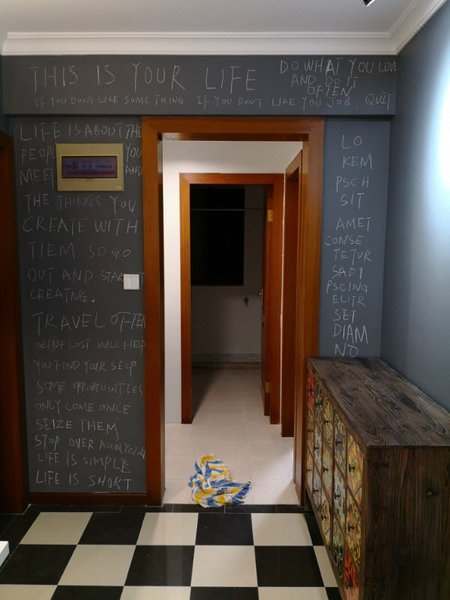 THIS IS YOUR LIFE
DO WHAT YOU LOVE
AND DO IT
OFTEN
IF YOU DON'T LIKE SOME THING IF YOU DON'T LIKE YOU JOB, QUIT
LIFE IS ABOUT THE
PEOPLE YOU
MEET AND
THE THINGS YOU
CREATE WITH
TIEM SO GO
OUT AND START
CREATNG.
TRAVEL OFTEN
LOST WILL HELP
YOU FIND YOUR SELF
SOME OPPORTUNITIES
ONLY COME ONCE
SEIZE THEM
STOP OVER
LIFE IS SIMPLE
LIFE IS SHORT
LO
KEM
PSCH
SIT
AMET
CONSE
TETUR
SADI
PSCING
ELITR
SET
DIAM
NO